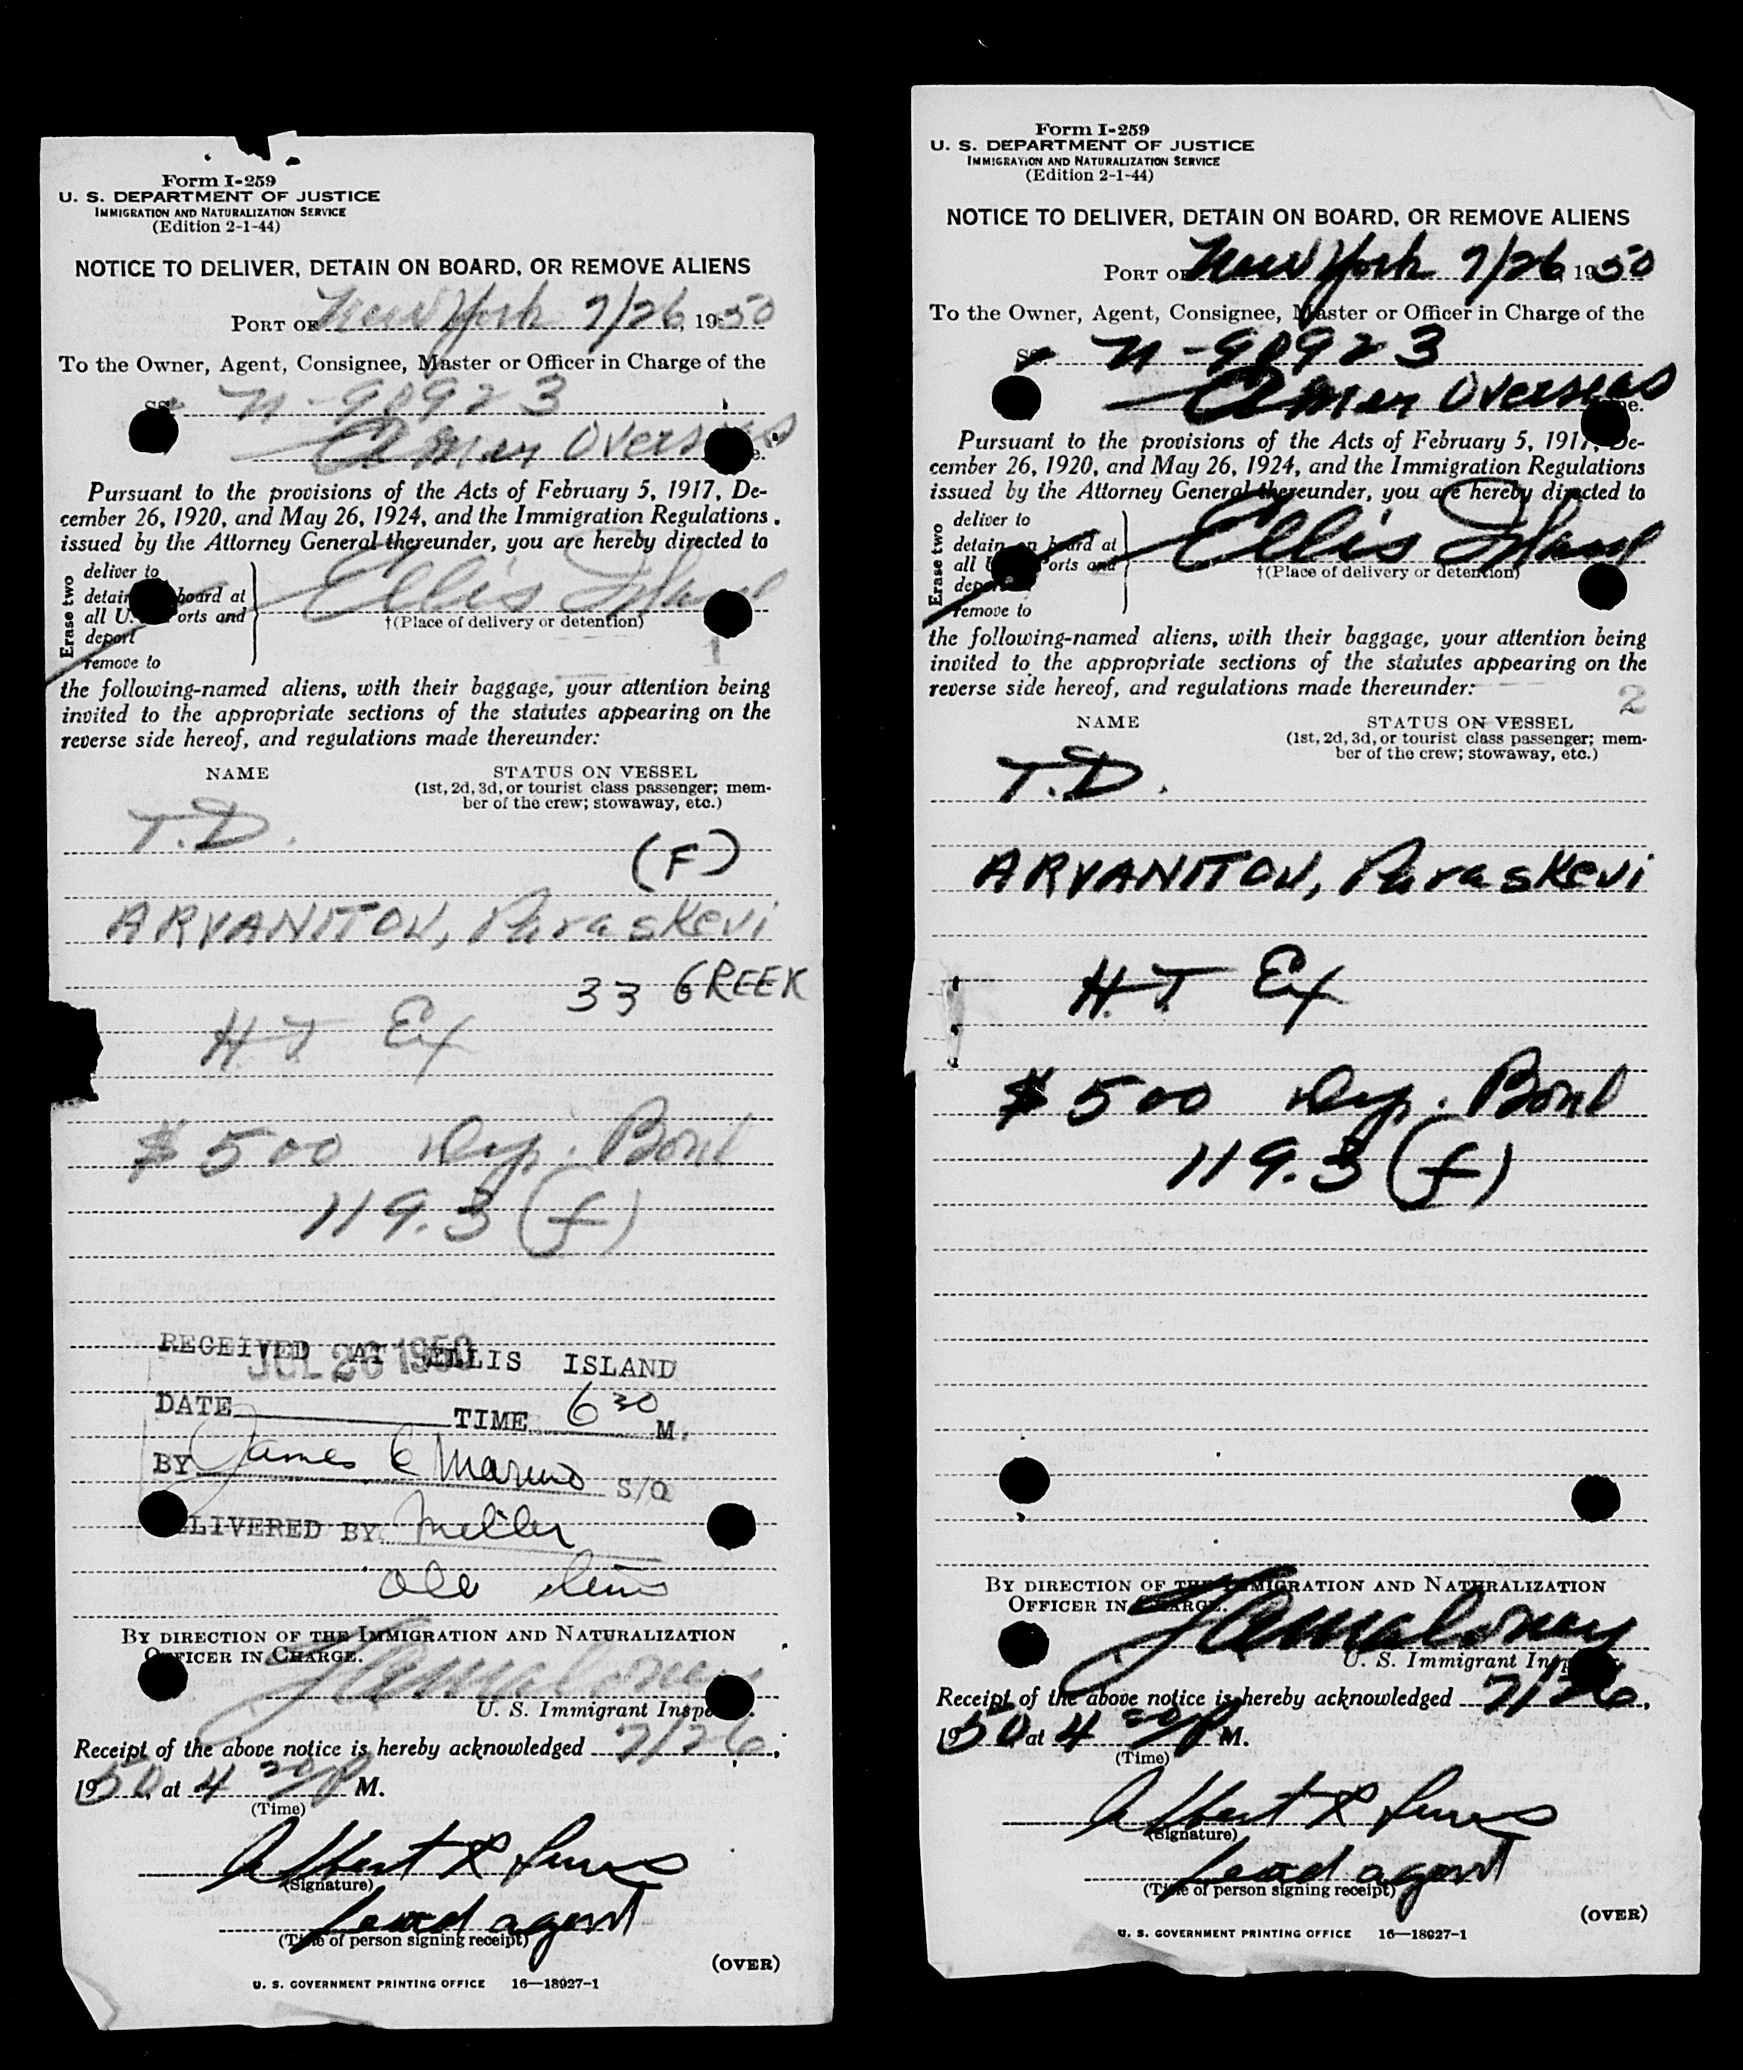 Form I-259
U. S. DEPARTMENT OF JUSTICE
IMMIGRATION AND NATURALIZATION SERVICE
(Edition 2-1-44)
NOTICE TO DELIVER, DETAIN ON BOARD, OR REMOVE ALIENS
PORT OF New York 7/26, 1950
To the Owner, Agent, Consignee, Master or Officer in Charge of the
N-90923
Amer Overseas
Pursuant to the provisions of the Acts of February 5, 1917, De-
cember 26, 1920, and May 26, 1924, and the Immigration Regulations
issued by the Attorney General thereunder, you are hereby directed to
Erase two
deliver to
detain board at
all U. orts and
deport
remove to
Ellis Island
†(Place of delivery or detention)
1
the following-named aliens, with their baggage, your attention being
invited to the appropriate sections of the statutes appearing on the
reverse side hereof, and regulations made thereunder:
NAME STATUS ON VESSEL
(1st, 2d, 3d, or tourist class passenger; mem-
ber of the crew; stowaway, etc.)
T.D.
(F)
ARVANITOU, Paraskevi
33 GREEK
H.T Ex
$500 Dep. Bond
119.3 (f)
RECEIVED AT ELLIS ISLAND
JUL 26 1950
DATE TIME 6 30 M.
BY James C Marino S/O
DELIVERED BY Miller
BY DIRECTION OF THE IMMIGRATION AND NATURALIZATION
OFFICER IN CHARGE.
JAMaloney
U. S. Immigrant Inspe
Receipt of the above notice is hereby acknowledged 7/26,
1950, at 4 30 P M.
(Time)
Albert R
(Signature)
Lead agent
(Title of person signing receipt)
(OVER)
U. S. GOVERNMENT PRINTING OFFICE 16—18927-1
Form I-259
U. S. DEPARTMENT OF JUSTICE
IMMIGRATION AND NATURALIZATION SERVICE
(Edition 2-1-44)
NOTICE TO DELIVER, DETAIN ON BOARD, OR REMOVE ALIENS
PORT OF New York 7/26, 1950
To the Owner, Agent, Consignee, Master or Officer in Charge of the
SS. N-90923
Amer Overseas
Pursuant to the provisions of the Acts of February 5, 1917, De-
cember 26, 1920, and May 26, 1924, and the Immigration Regulations
issued by the Attorney General thereunder, you are hereby directed to
Erase two
deliver to
detain on board at
all U orts and
deport
remove to
Ellis Island
†(Place of delivery or detention)
the following-named aliens, with their baggage, your attention being
invited to the appropriate sections of the statutes appearing on the
reverse side hereof, and regulations made thereunder:
2
NAME STATUS ON VESSEL
(1st, 2d, 3d, or tourist class passenger; mem-
ber of the crew; stowaway, etc.)
T.D.
ARVANITOU, Paraskevi
H.T Ex
$500 Dep. Bond
119.3 (f)
BY DIRECTION OF THE IMMIGRATION AND NATURALIZATION
OFFICER IN CHARGE.
JAMaloney
U. S. Immigrant Insp
Receipt of the above notice is hereby acknowledged 7/26,
1950, at 4 30 P M.
(Time)
Albert R
(Signature)
Lead agent
(Title of person signing receipt)
(OVER)
U. S. GOVERNMENT PRINTING OFFICE 16—18927-1